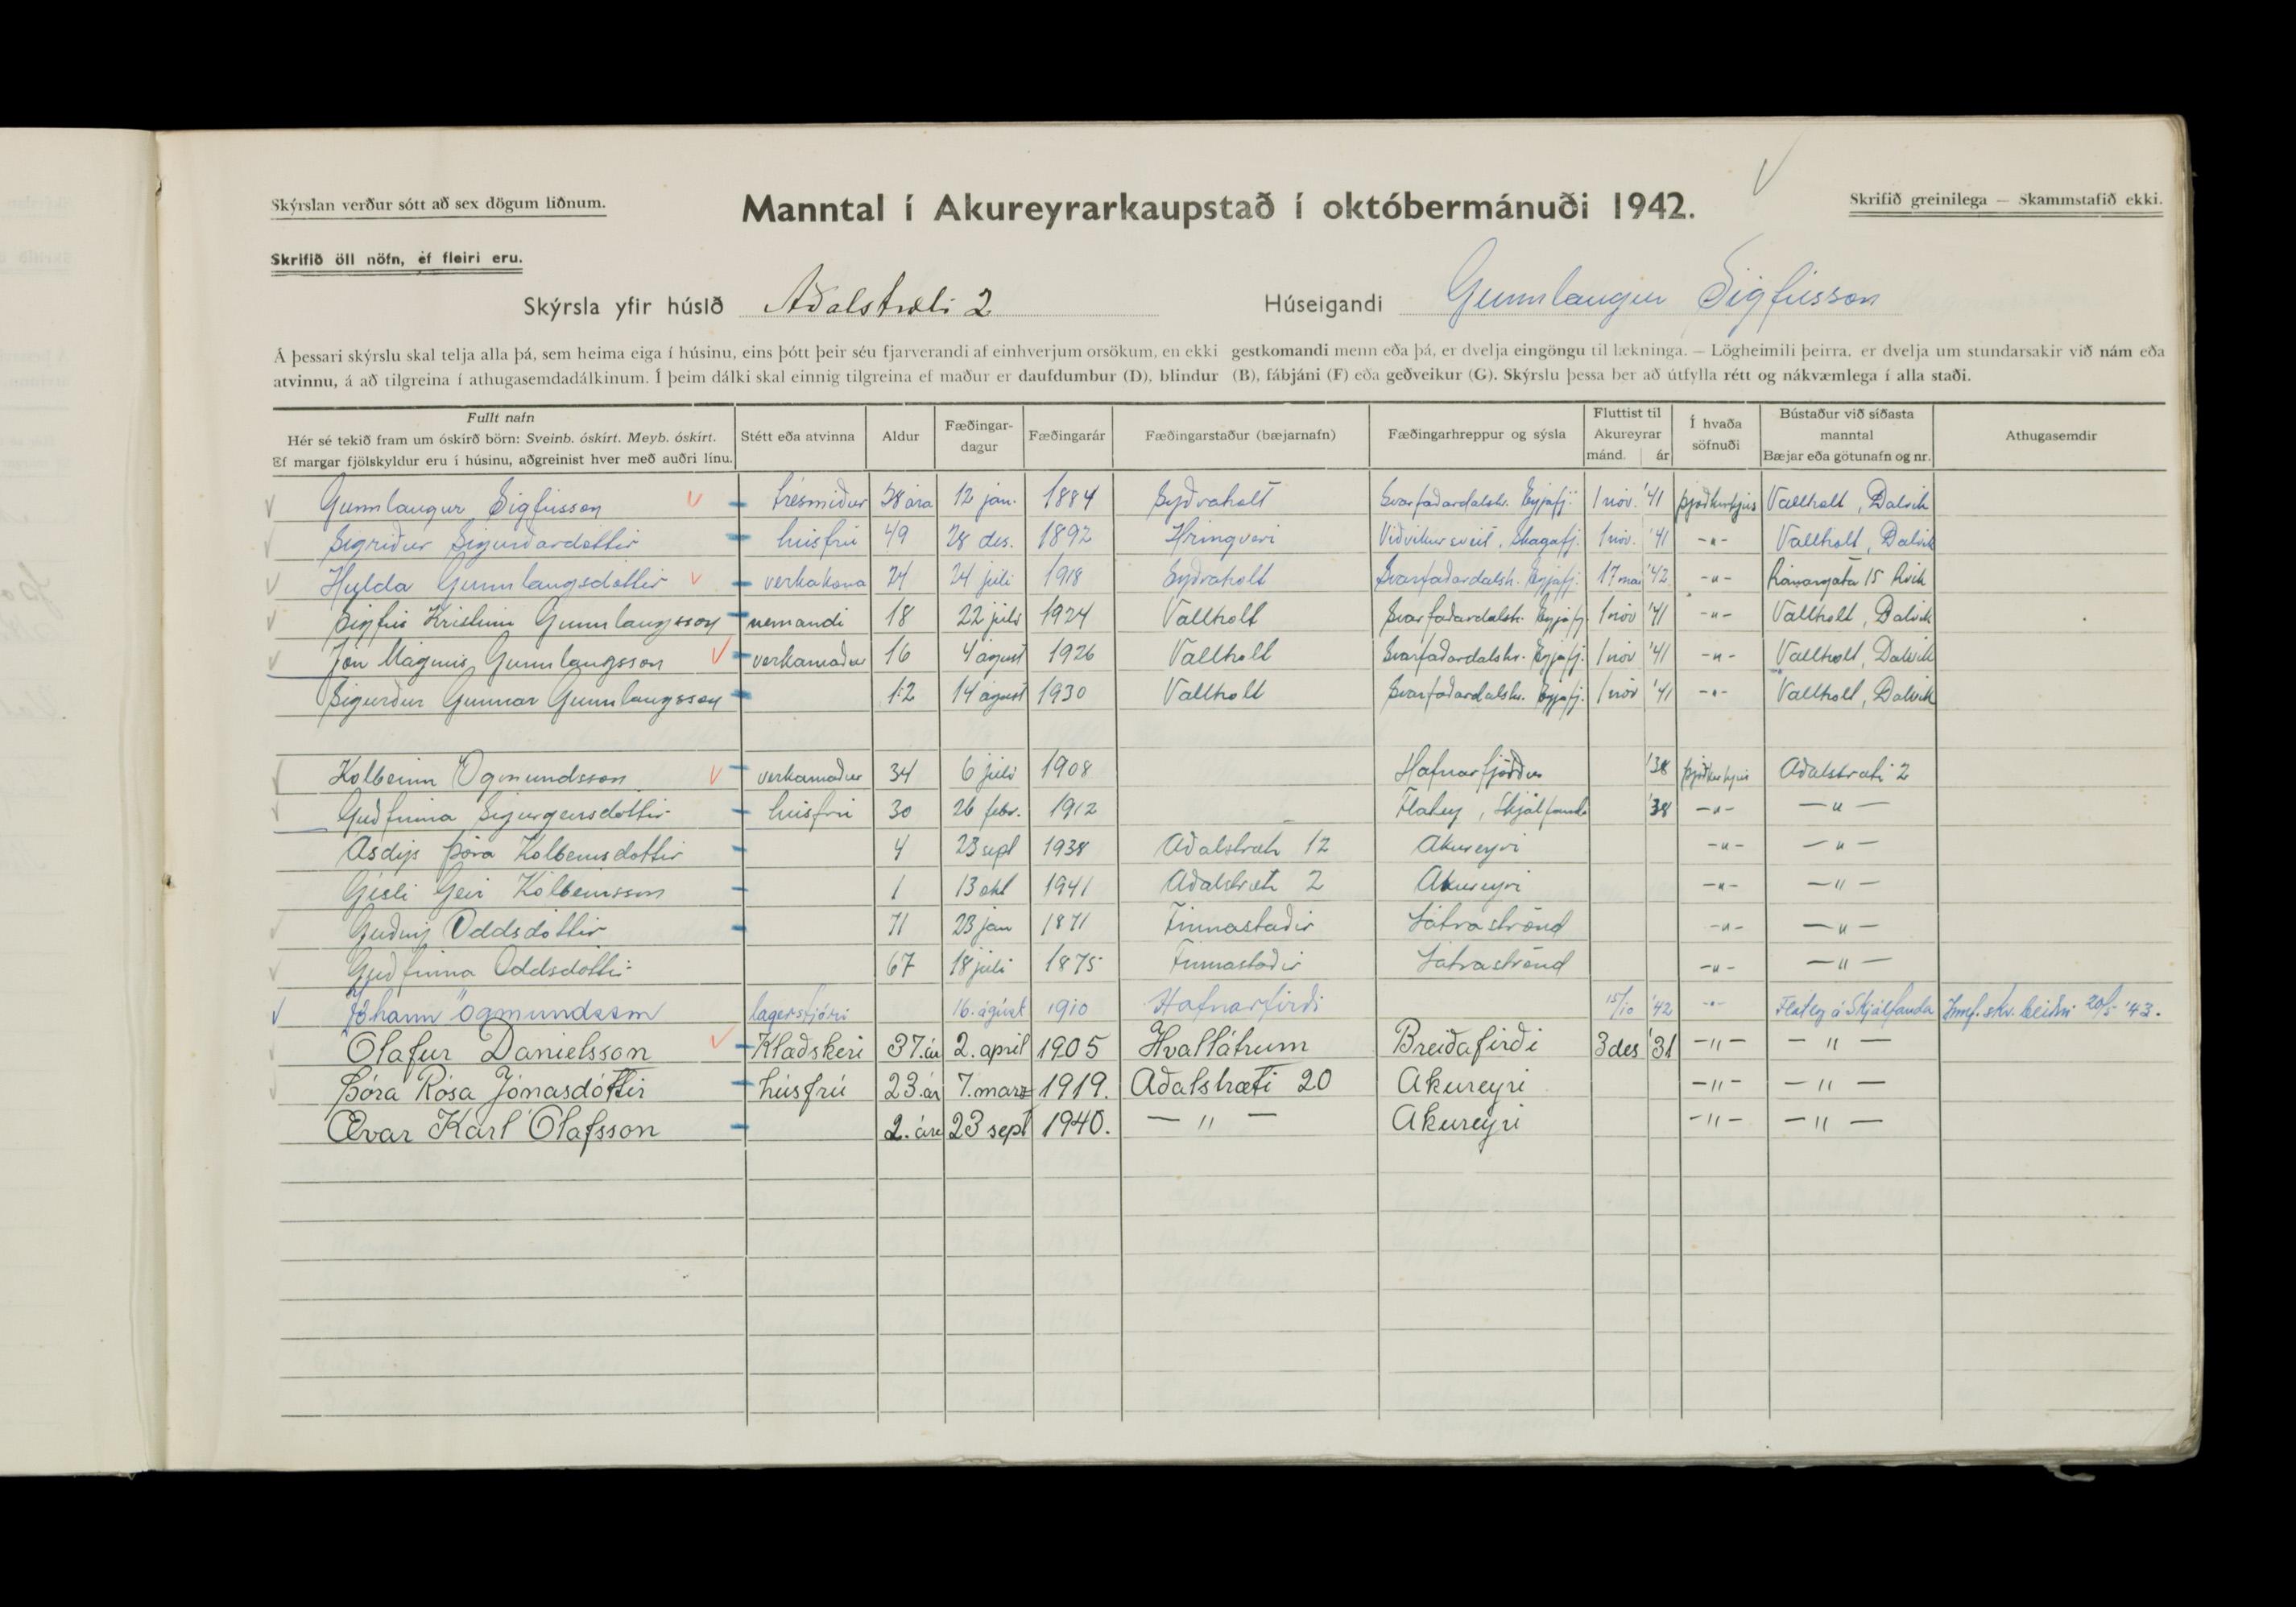 Skýrslan verður sótt að sex dögum liðnum.
Manntal í Akureyrarkaupstað í októbermánuði 1942.
Skrifið greinilega — Skammstafið ekki.
Skrifið öll nöfn, ef fleiri eru.
Skýrsla yfir húsið Aðalstræti 2 Húseigandi Gunnlaugur Sigfússon
Á þessari skýrslu skal telja alla þá, sem heima eiga í húsinu, eins þótt þeir séu fjarverandi af einhverjum orsökum, en ekki gestkomandi menn eða þá, er dvelja eingöngu til lækninga. — Lögheimili þeirra, er dvelja um stundarsakir við nám eða
atvinnu, á að tilgreina í athugasemdadálkinum. Í þeim dálki skal einnig tilgreina ef maður er daufdumbur (D), blindur (B), fábjáni (F) eða geðveikur (G). Skýrslu þessa ber að útfylla rétt og nákvæmlega í alla staði.
Fullt nafn
Hér sé tekið fram um óskírð börn: Sveinb. óskírt. Meyb. óskírt.
Ef margar fjölskyldur eru í húsinu, aðgreinist hver með auðri línu.
Stétt eða atvinna
Aldur
Fæðingar-
dagur
Fæðingarár
Fæðingarstaður (bæjarnafn)
Fæðingarhreppur og sýsla
Fluttist til
Akureyrar
mánd. ár
Í hvaða
söfnuði
Bústaður við síðasta
manntal
Bæjar eða götunafn og nr.
Athugasemdir
Gunnlaugur Sigfússon trésmiður 58 ára 12 jan. 1884 Syðraholt Svarfaðardalshr. Eyjafj. 1 nóv. '41 þjóðkirkjus Vallholt, Dalvík
Sigríður Sigurðardóttir húsfrú 49 28 des. 1892 Hringveri Viðvíkursveit, Skagafj. 1 nóv. '41 -"- Vallholt, Dalvík
Hulda Gunnlaugsdóttir verkakona 24 24 júli 1918 Syðraholt Svarfaðardalsh. Eyjafj. 17 mai '42 -"- Ránargata 15 Rvík
Sigfús Kristinn Gunnlaugsson nemandi 18 22 júli 1924 Vallholt Svarfaðardalshr. Eyjafj 1 nóv '41 -"- Vallholt, Dalvík
Jón Magnús Gunnlaugsson verkamaður 16 4 ágúst 1926 Vallholt Svarfaðardalshr. Eyjafj. 1 nóv '41 -"- Vallholt, Dalvík
Sigurður Gunnar Gunnlaugsson 12 14 ágúst 1930 Vallholt Svarfaðardalshr. Eyjafj. 1 nóv '41 -"- Vallholt, Dalvík
Kolbeinn Ögmundsson verkamaður 34 6 júlí 1908 Hafnarfjörður '38 Aðalstræti 2
Guðfinna Sigurgeirsdóttir húsfrú 30 26 febr. 1912 Flatey, Skjálfanda '38 -"- -"-
Ásdís Þóra Kolbeinsdóttir 4 23 sept 1938 Aðalstræti 12 Akureyri -"- -"-
Gísli Geir Kolbeinsson 1 13 okt 1941 Aðalstræti 2 Akureyri -"- -"-
Guðný Oddsdóttir 71 23 jan 1871 Finnastaðir Látraströnd -"- -"-
Guðfinna Oddsdóttir 67 18 júlí 1875 Finnastaðir Látraströnd -"- -"-
Jóhann Ögmundsson lagerstjóri 16. ágúst 1910 Hafnarfirði 15/10 '42 -"- Flatey á Skjálfanda Innf. skv. beiðni 20/5 '43.
Ólafur Danielsson Klæðskeri 37. ár 2. apríl 1905 Hvallátrum Breiðafirði 3 des '31 -"- -"-
Þóra Rósa Jónasdóttir húsfrú 23. ár 7. marz 1919. Aðalstræti 20 Akureyri -"- -"-
Ævar Karl Ólafsson 2. ára 23 sept 1940. -"- Akureyri -"- -"-